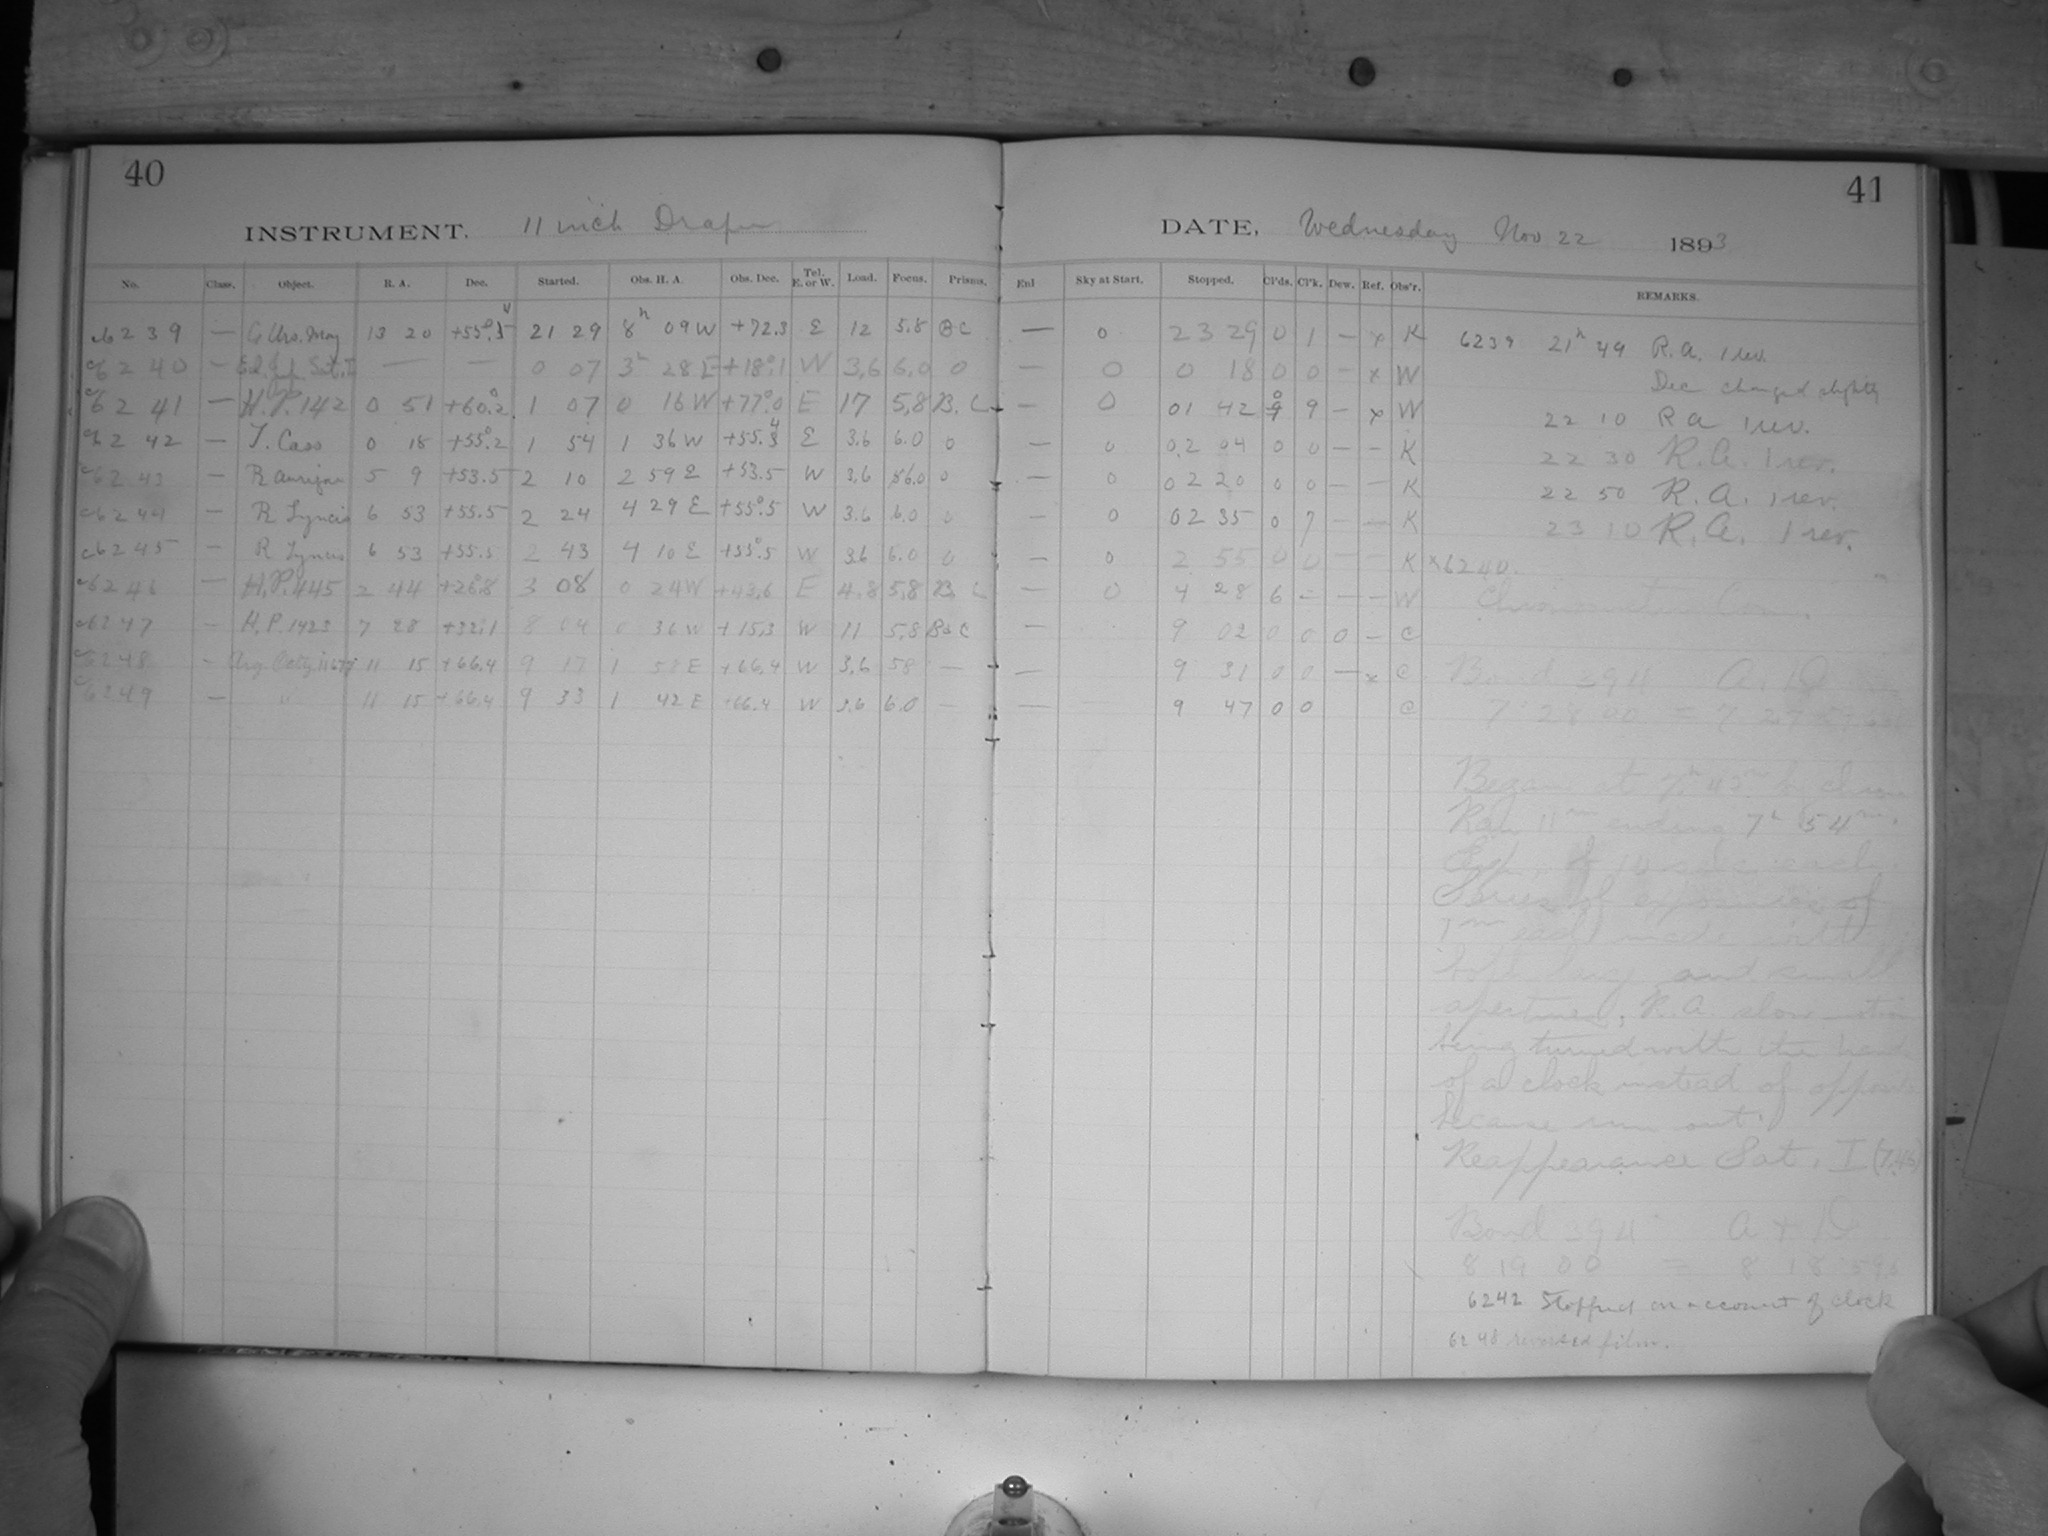 40
INSTRUMENT. 11 inch Draper
No. Class. Object. R. A. Dec. Started. Obs. H. A. Obs. Dec. Tel. E. or W. Load. Focus. Prisms.
c6239 — 13 20 21 29 8h 09 W +72.3 E 12 5.8 BC
c6240 — — — 0 07 3h 28 E +18°.1 W 3.6 6.0 0
c6241 — H.P. 142 0 51 +60°.2 1 07 0 16 W +77°.0 E 17 5.8 B. C
c6242 — T. Cass 0 18 +55°.2 1 54 1 36 W E 3.6 6.0 0
c6243 — R Aurigae 5 9 +53.5 2 10 2 59 E +53.5 W 3.6 6.0 0
c6244 — R Lyncis 6 53 +55.5 2 24 4 29 E +55°.5 W 3.6 6.0 0
c6245 — R Lyncis 6 53 +55.5 2 43 4 10 E +55°.5 W 3.6 6.0 0
c6246 — H.P. 445 2 44 +26.8 3 08 0 24 W +43.6 E 4.8 5.8 B. C
c6247 — H.P. 1423 7 28 +32.1 8 04 0 36 W +15.3 W 11 5.8 B&C
c6248 — 11 15 +66.4 9 17 1 58 E +66.4 W 3.6 58 —
c6249 — " 11 15 +66.4 9 33 1 42 E +66.4 W 3.6 6.0 —
41
DATE, Wednesday Nov 22 1893
Enl Sky at Start. Stopped. Cl'ds. Cl'k. Dew. Ref. Obs'r. REMARKS.
— 0 23 29 0 1 — x K
— 0 0 18 0 0 — x W
— 0 01 42 9 — x W
— 0 02 04 0 0 — — K
— 0 02 20 0 0 — — K
— 0 02 35 0 7 — — K
— 0 2 55 0 0 — — K
— 0 4 28 6 — — — W
— 9 02 0 0 0 — C
— 9 31 0 0 — x C
— 9 47 0 0 C
6239 21h 49 R.A. 1 rev.
Dec changed slightly
22 10 RA 1 rev.
22 30 R.A. 1 rev.
22 50 R.A. 1 rev.
23 10 R.A. 1 rev.
x6240.
Chronometer Com.
Bond 394 A. & D
7 28 00
Began at 7h 43m by chron
Ran 11m ending 7h 54m.
Exp. of 10 sec. each.
Series of exposures of
1m each made with
and small
aperture, R.A. slow motion
being turned with the hands
of a clock instead of
because run out.
Reappearance Sat. I
Bond 394 A & D
8 19 00 = 8 18
6242 Stopped on account of clock
6248 reversed film.